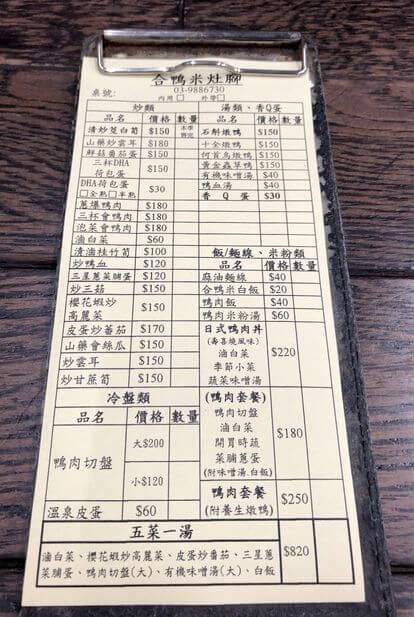 合鴨米灶腳
03-9886730
桌號:
內用□ 外帶□
炒類
品名 價格 數量
清炒茭白筍 $150 本季售完
山藥炒雲耳 $180
鮮菇番茄蛋 $150
三杯DHA荷包蛋 $150
DHA荷包蛋 □全熟□半熟 $30
蔥爆鴨肉 $180
三杯會鴨肉 $180
泡菜會鴨肉 $180
滷白菜 $60
清滷桂竹筍 $100
炒鴨血 $120
三星蔥菜脯蛋 $120
炒三菇 $150
櫻花蝦炒高麗菜 $150
皮蛋炒番茄 $170
山藥會絲瓜 $150
炒雲耳 $150
炒甘蔗筍 $150
冷盤類
品名 價格 數量
鴨肉切盤 大$200
小$120
溫泉皮蛋 $60
湯類、香Q蛋
品名 價格 數量
石斛燉鴨 $150
十全燉鴨 $150
何首烏燉鴨 $150
黃金蟲草鴨 $150
有機味噌湯 $40
鴨血湯 $40
香Q蛋 $30
飯/麵線、米粉類
品名 價格 數量
麻油麵線 $40
合鴨米白飯 $20
鴨肉飯 $40
鴨肉米粉湯 $60
日式鴨肉丼
(壽喜燒風味)
滷白菜
季節小菜
蔬菜味噌湯
$220
(鴨肉套餐)
鴨肉切盤
滷白菜
開胃時蔬
菜脯蔥蛋
(附味噌湯.白飯)
$180
鴨肉套餐
(附養生燉鴨)
$250
五菜一湯
滷白菜、櫻花蝦炒高麗菜、皮蛋炒番茄、三星蔥
菜脯蛋、鴨肉切盤(大)、有機味噌湯(大)、白飯
$820